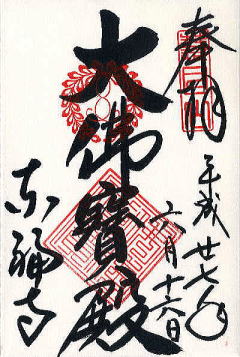 奉拝
平成廿七年
六月十六日
大佛寶殿
東福寺